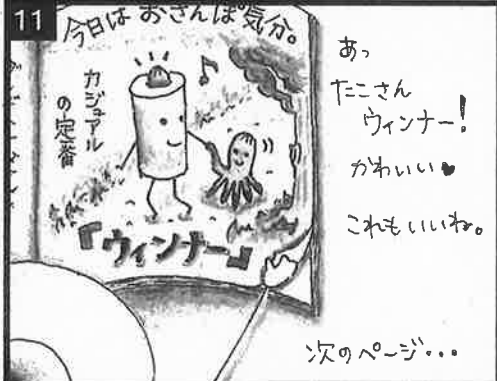 11
今日は おさんぽ気分。
カジュアル
の定番
『ウィンナー』
あっ
たこさん
ウィンナー!
かわいい♥
これもいいね。
次のページ・・・